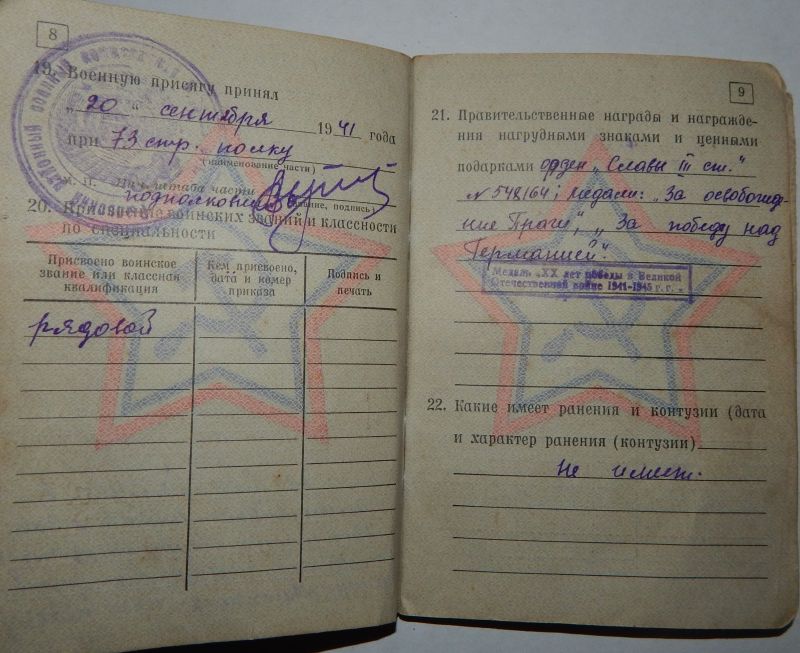 8
19. Военную присягу принял
„20“ сентября 1941 года
при 73 стр. полку
(наименование части)
Нач. штаба части
подполковник
20. Присвоение воинских званий и классности
по специальности
Присвоено воинское звание или классная квалификация
Кем присвоено, дата и номер приказа
Подпись и печать
рядовой
9
21. Правительственные награды и награжде-
ния нагрудными знаками и ценными
подарками орден „Славы III ст.“
№ 548164; медали: „За освобожде-
ние Праги“, „За победу над
Германией“.
Медаль «XX лет победы в Великой
Отечественной войне 1941-1945 г.г.»
22. Какие имеет ранения и контузии (дата
и характер ранения (контузии)
Не имеет.